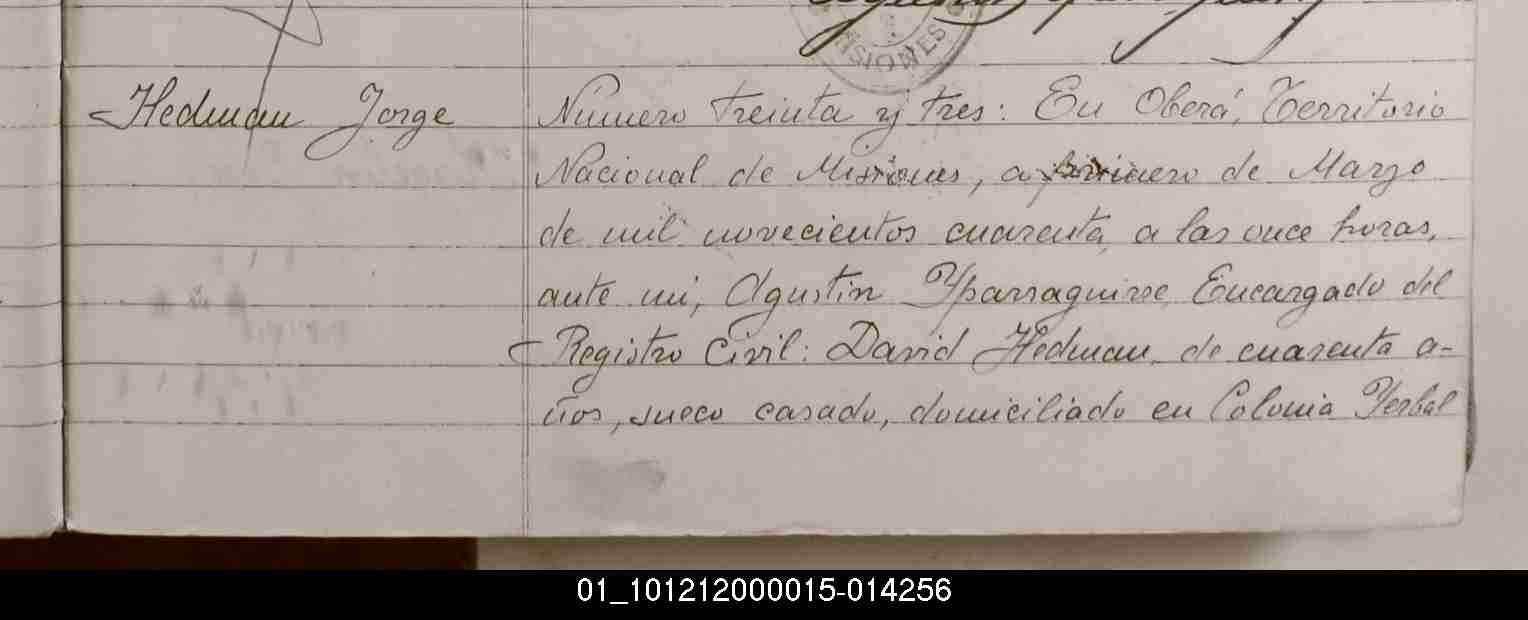 ISIONES
Hedman Jorge
Número treinta y tres: En Oberá, Territorio
Nacional de Misiones, a primero de Marzo
de mil novecientos cuarenta, a las once horas,
ante mi, Agustin Yparraguirre, Encargado del
Registro Civil: David Hedman, de cuarenta a-
ños, sueco casado, domiciliado en Colonia Yerbal
01_101212000015-014256